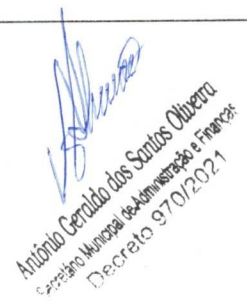 António Geraldo dos Santos Oliveira
Secretário Municipal de Administração e Finanças
Decreto 970/2021